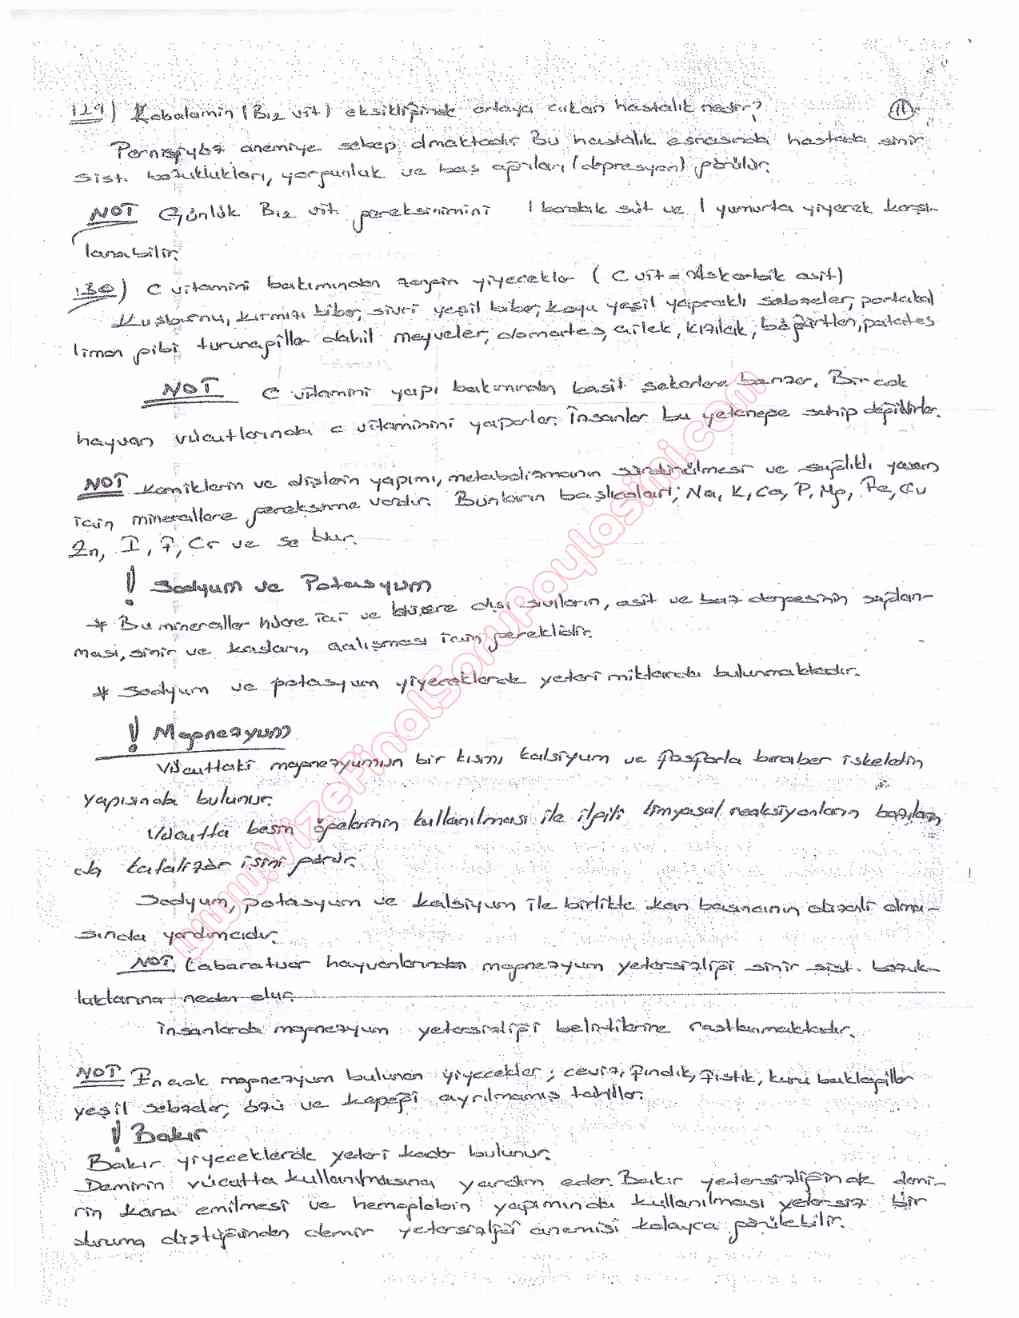 129) Kobalamin (B12 vit) eksikliğinde ortaya çıkan hastalık nedir?
11
Pernisiyöz anemiye sebep olmaktadır. Bu hastalık esnasında hastada sinir
sist. bozuklukları, yorgunluk ve baş ağrıları (depresyon) görülür.
NOT Günlük B12 vit. gereksinimini 1 bardak süt ve 1 yumurta yiyerek karşı-
lanabilir.
130) C vitamini bakımından zengin yiyecekler (C vit = Askorbik asit)
Kuşburnu, kırmızı biber, sivri yeşil biber, koyu yeşil yapraklı sebzeler, portakal
limon gibi turunçgiller dahil meyveler, domates, çilek, kızılcık, böğürtlen, patates
NOT C vitamini yapı bakımından basit şekerlere benzer. Birçok
hayvan vücutlarında C vitaminini yaparlar. İnsanlar bu yeteneğe sahip değildirler.
NOT Kemiklerin ve dişlerin yapımı, metabolizmanın sürdürülmesi ve sağlıklı yaşam
için minerallere gereksinme vardır. Bunların başlıcaları; Na, K, Ca, P, Mg, Fe, Cu
Zn, I, F, Cr ve Se dur.
! Sodyum ve Potasyum
* Bu mineraller hücre içi ve hücre dışı sıvıların, asit ve baz dengesinin sağlan-
ması, sinir ve kasların çalışması için gereklidir.
* Sodyum ve potasyum yiyeceklerde yeteri miktarda bulunmaktadır.
! Magnezyum
Vücuttaki magnezyumun bir kısmı kalsiyum ve fosforla beraber iskeletin
yapısında bulunur.
Vücutta besin öğelerinin kullanılması ile ilgili kimyasal reaksiyonların bazıların
da katalizör işini görür.
Sodyum, potasyum ve kalsiyum ile birlikte kan basıncının düzenli olma-
sında yardımcıdır.
NOT Labaratuar hayvanlarından magnezyum yetersizliği sinir sist. bozuk-
luklarına neden olur.
İnsanlarda magnezyum yetersizliği belirtilerine rastlanmaktadır.
NOT En çok magnezyum bulunan yiyecekler; ceviz, fındık, fıstık, kuru baklagiller
yeşil sebzeler, özü ve kepeği ayrılmamış tahıllar.
! Bakır
Bakır yiyeceklerde yeteri kadar bulunur.
Demirin vücutta kullanılmasına yardım eder. Bakır yetersizliğinde demi-
rin kana emilmesi ve hemoglobin yapımında kullanılması yetersiz bir
duruma düştüğünden demir yetersizliği anemisi kolayca görülebilir.
www.VizeFinalSoruPaylasimi.com